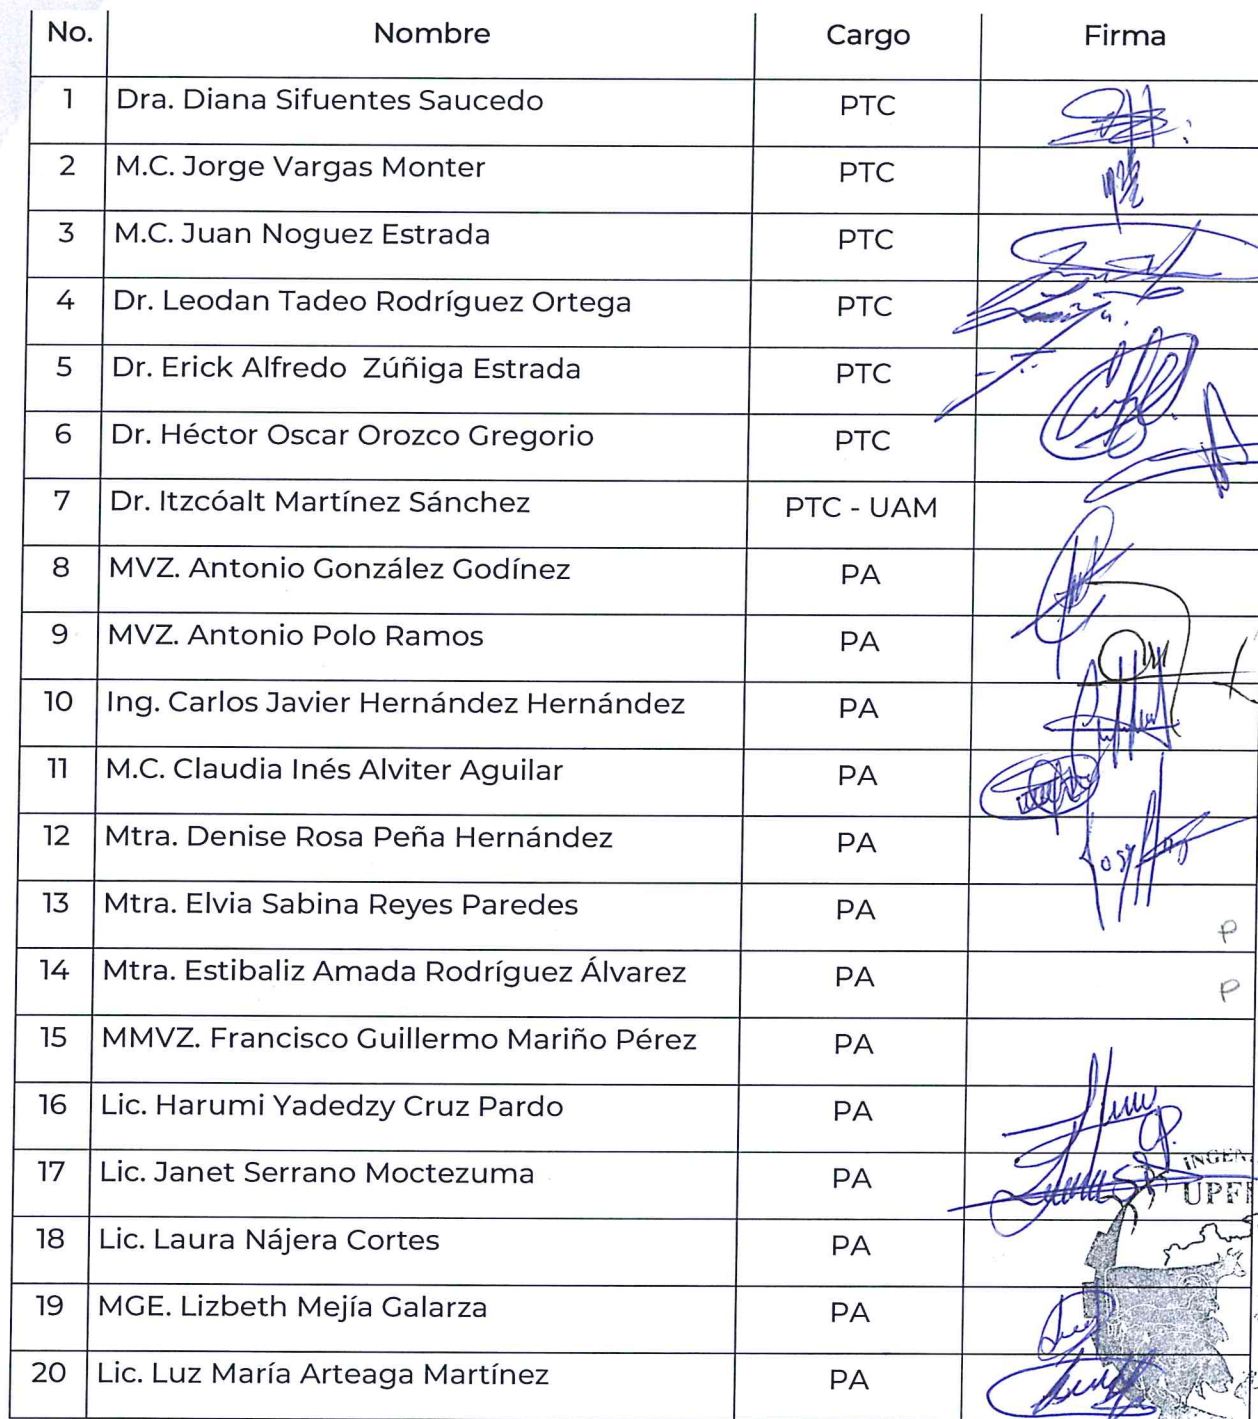 No. Nombre Cargo Firma
1 Dra. Diana Sifuentes Saucedo PTC
2 M.C. Jorge Vargas Monter PTC
3 M.C. Juan Noguez Estrada PTC
4 Dr. Leodan Tadeo Rodríguez Ortega PTC
5 Dr. Erick Alfredo Zúñiga Estrada PTC
6 Dr. Héctor Oscar Orozco Gregorio PTC
7 Dr. Itzcóalt Martínez Sánchez PTC - UAM
8 MVZ. Antonio González Godínez PA
9 MVZ. Antonio Polo Ramos PA
10 Ing. Carlos Javier Hernández Hernández PA
11 M.C. Claudia Inés Alviter Aguilar PA
12 Mtra. Denise Rosa Peña Hernández PA
13 Mtra. Elvia Sabina Reyes Paredes PA P
14 Mtra. Estibaliz Amada Rodríguez Álvarez PA P
15 MMVZ. Francisco Guillermo Mariño Pérez PA
16 Lic. Harumi Yadedzy Cruz Pardo PA
17 Lic. Janet Serrano Moctezuma PA
18 Lic. Laura Nájera Cortes PA
19 MGE. Lizbeth Mejía Galarza PA
20 Lic. Luz María Arteaga Martínez PA